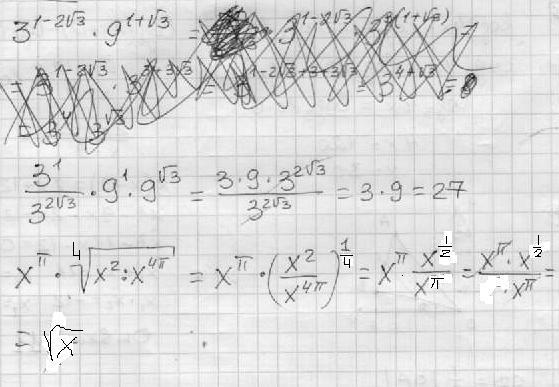 3^{1-2√3} · 9^{1+√3} = 3^{1-2√3} · 3^{3(1+√3)} =
= 3^{1-2√3} · 3^{3+3√3} = 3^{1-2√3+3+3√3} = 3^{4+√3} =
= 3^4 · 3^{√3}
\frac{3^1}{3^{2√3}} · 9^1 · 9^{√3} = \frac{3·9·3^{2√3}}{3^{2√3}} = 3·9 = 27
x^π · \sqrt[4]{x^2 : x^{4π}} = x^π · (\frac{x^2}{x^{4π}})^{\frac{1}{4}} = x^π · \frac{x^{\frac{1}{2}}}{x^π} = \frac{x^π · x^{\frac{1}{2}}}{· x^π} =
= √x